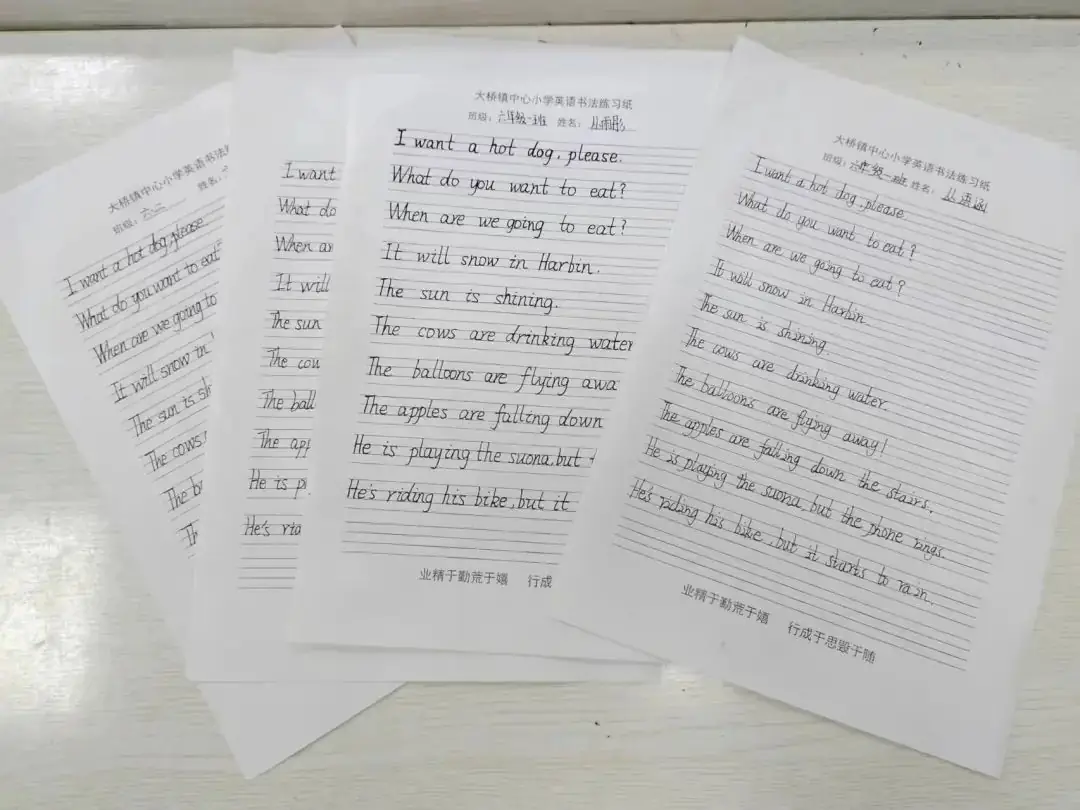 大桥镇中心小学英语书法练习
姓名：
班级： 六二
I want a hot dog, please
What do you want to eat
When are we going to
It will snow in
The sun is sh
The cows
The b
Th
I want
What do
When ar
It will
The sun
The cow
The ball
The app
He is p
He's rid
大桥镇中心小学英语书法练习纸
班级： 六年级一班 姓名： 丛雨彤
I want a hot dog, please.
What do you want to eat?
When are we going to eat?
It will snow in Harbin.
The sun is shining.
The cows are drinking water
The balloons are flying awa
The apples are falling down
He is playing the suona, but
He's riding his bike, but it
业精于勤荒于嬉 行成
大桥镇中心小学英语书法练习纸
班级： 六年级一班 姓名： 丛语涵
I want a hot dog, please
What do you want to eat?
When are we going to eat?
It will snow in Harbin
The sun is shining.
The cows are drinking water.
The balloons are flying away!
The apples are falling down the stairs.
He is playing the suona, but the phone rings.
He's riding his bike, but it starts to rain.
业精于勤荒于嬉 行成于思毁于随